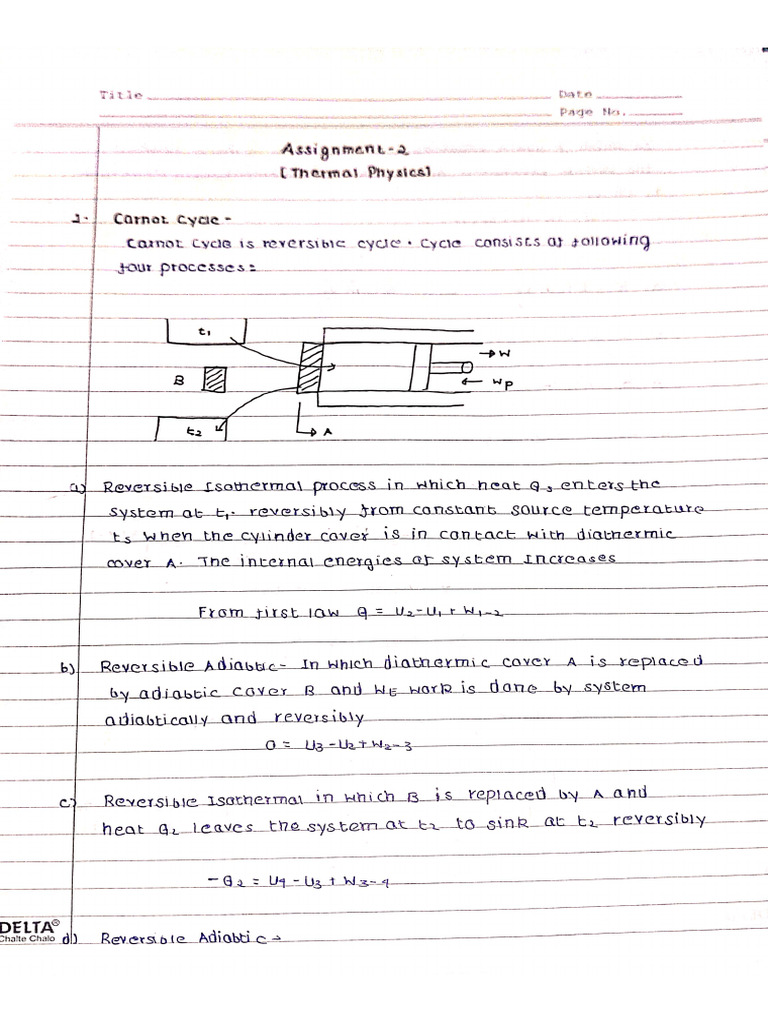 Title
Date
Page No.
Assignment-2
[Thermal Physics]
1. Carnot Cycle -
Carnot Cycle is reversible cycle. Cycle consists of following
four processes:
t1
→ W
B
← Wp
t2
→ A
a) Reversible Isothermal process in which heat Q, enters the
system at t1. reversibly from constant source temperature
ts when the cylinder cover is in contact with diathermic
cover A. The internal energies of system Increases
From first law Q = U2-U1 + W1-2
b) Reversible Adiabtic- In which diathermic cover A is replaced
by adiabtic cover B and WE work is done by system
adiabtically and reversibly
0 = U3-U2+W2-3
c) Reversible Isothermal in which B is replaced by A and
heat Q2 leaves the system at t2 to sink at t2 reversibly
-Q2 = U4 - U3 + W3-4
DELTA®
Chalte Chalo
d) Reversible Adiabtic →